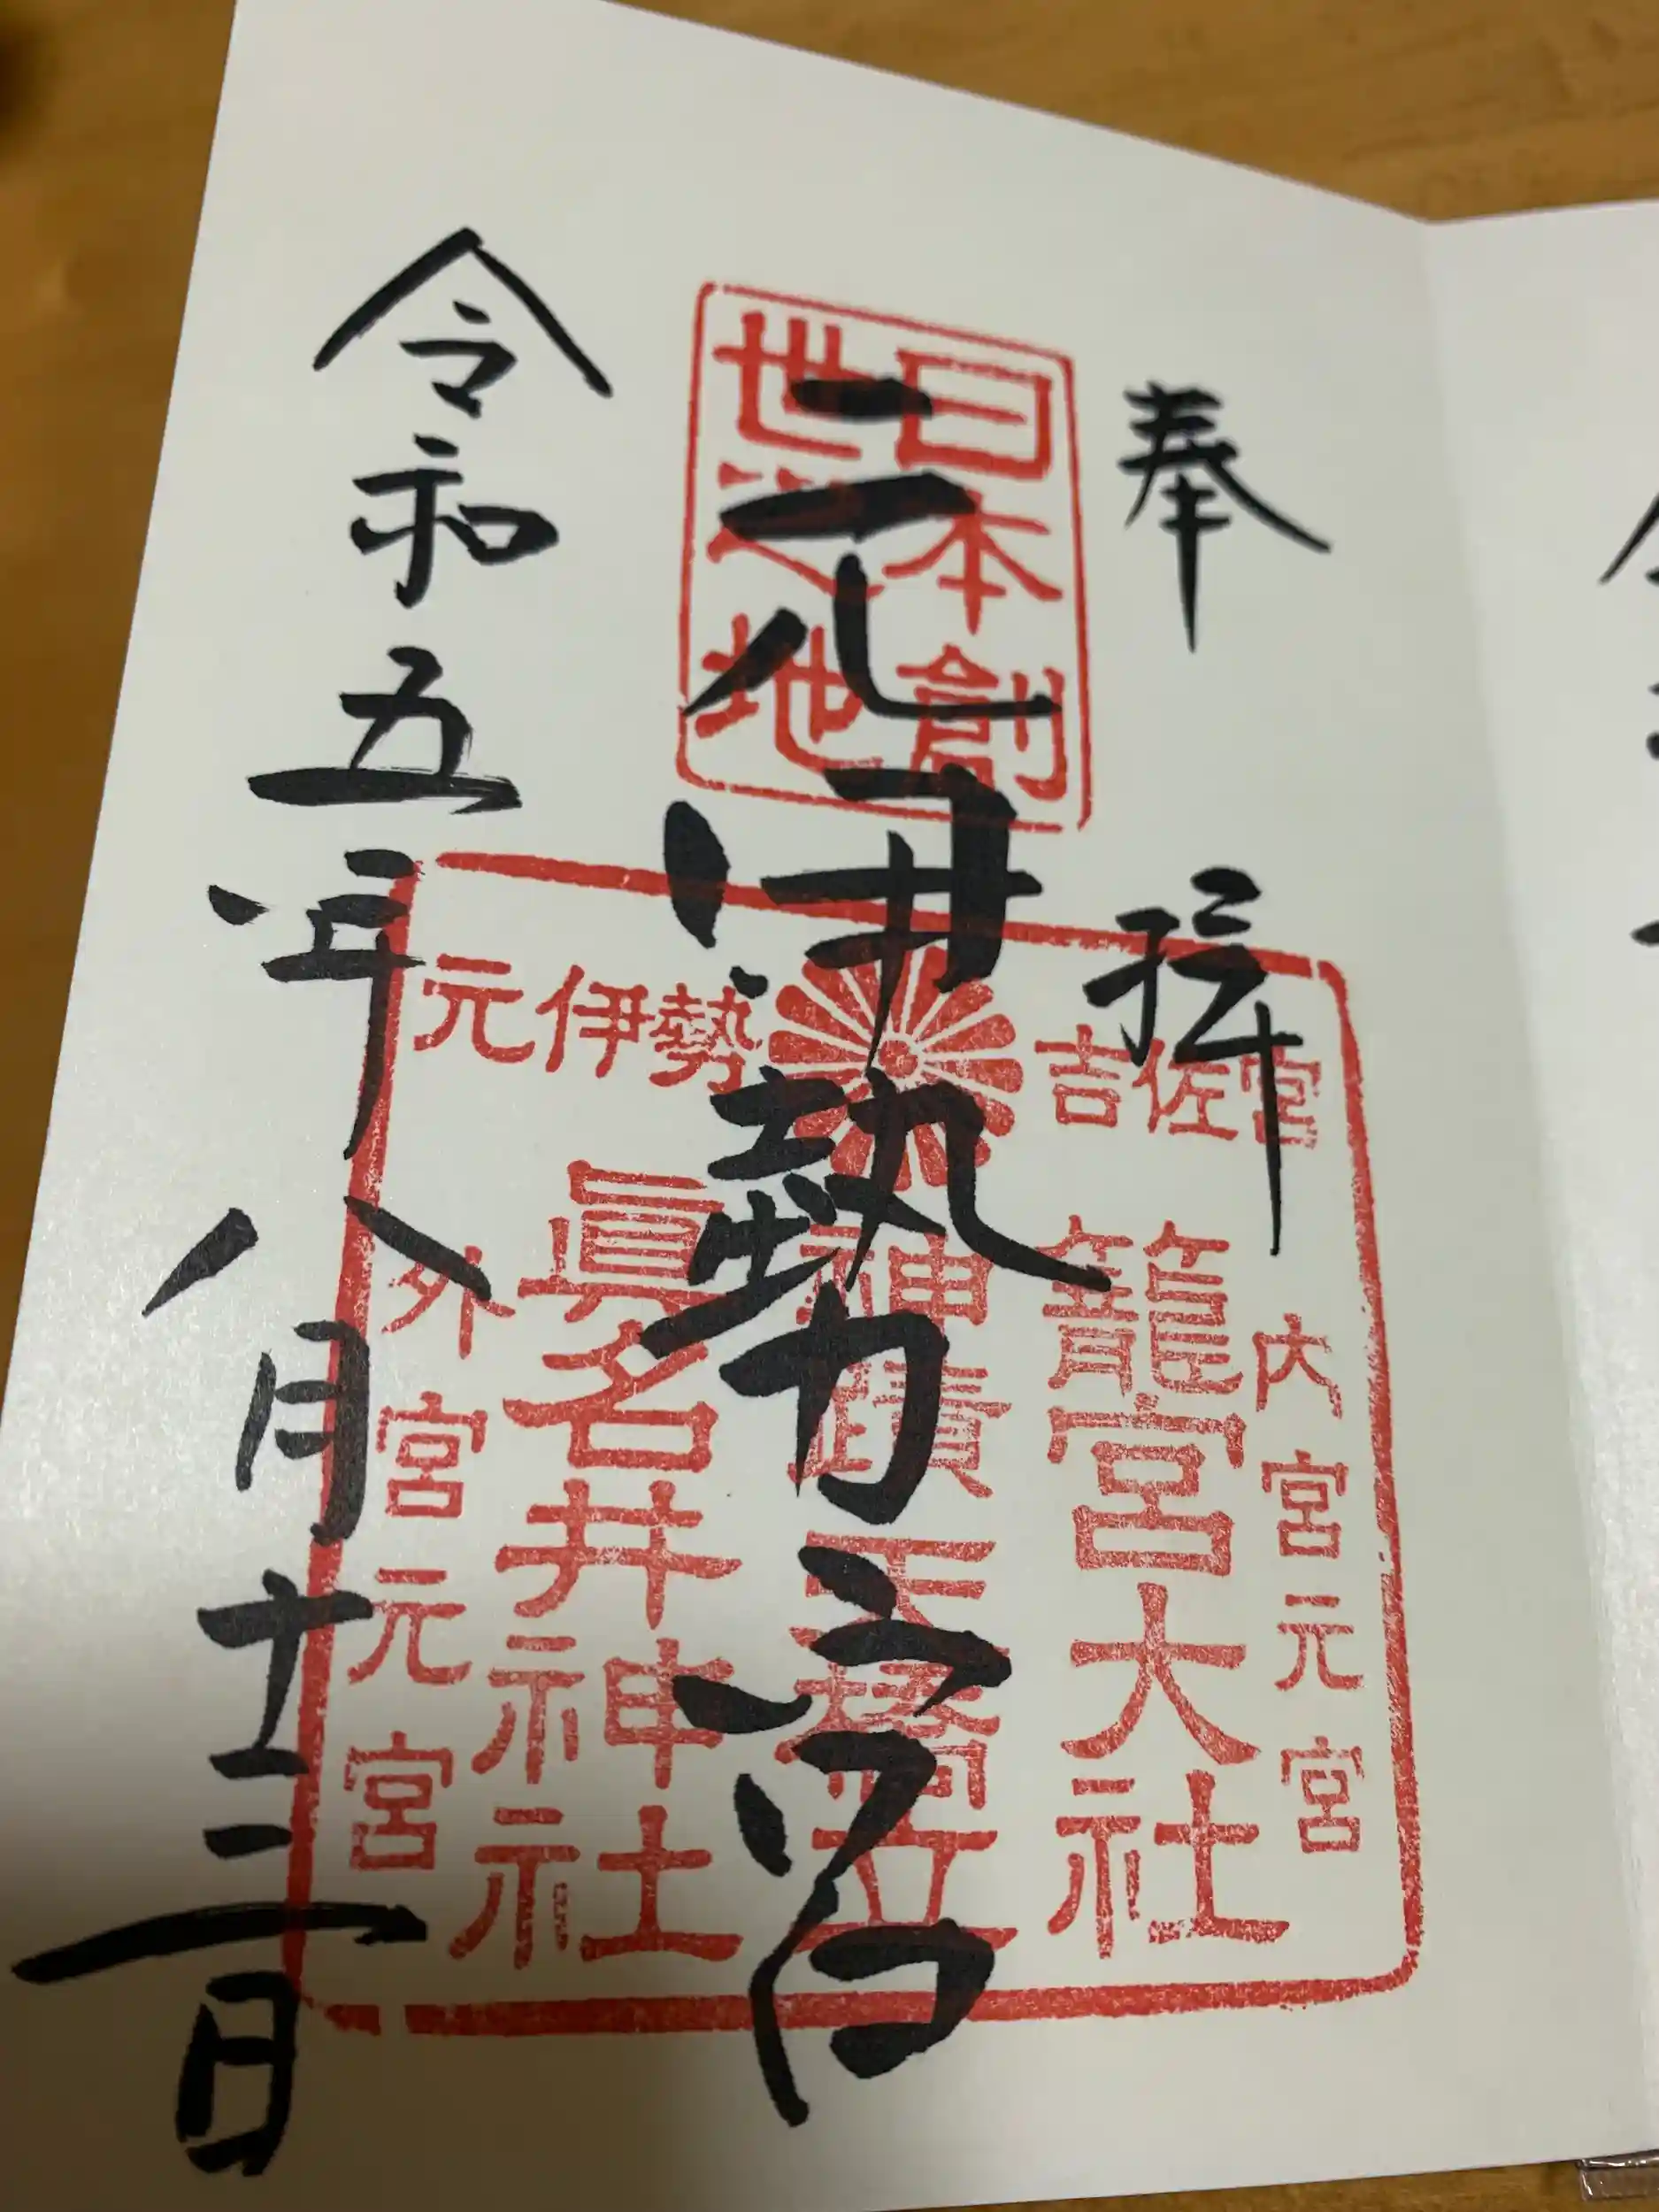 奉拝
日本創
世之地
元伊勢之宮
吉佐宮
元伊勢
内宮元宮
籠宮大社
神蹟天橋立
眞名井神社
外宮元宮
令和五年八月十三日